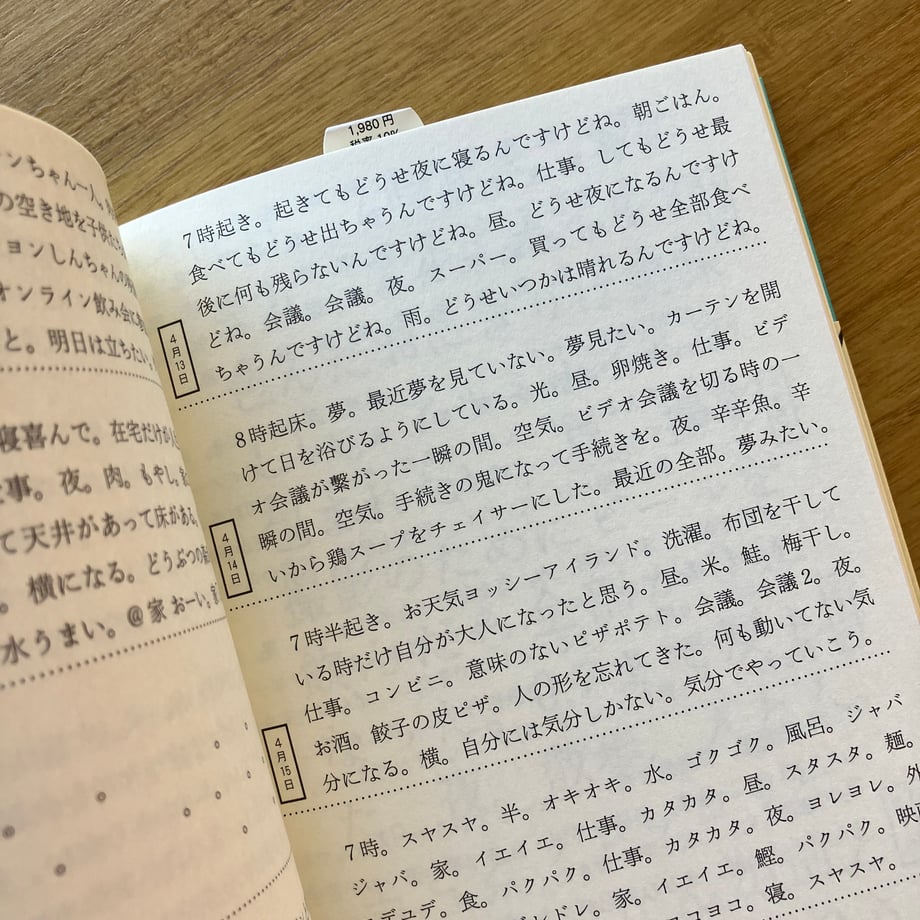 1,980円
税率10%
ンちゃん一人。
の空き地を子供
ヨンしんちゃんの
オンライン飲み会に
と。明日は立ちたい。
寝喜んで。在宅だけが
事。夜。肉。もやし。
て天井があって床がある。
。横になる。どうぶつの
水うまい。@家おーい。
7時起き。起きてもどうせ夜に寝るんですけどね。朝ごはん。
食べてもどうせ出ちゃうんですけどね。仕事。してもどうせ最
後に何も残らないんですけどね。昼。どうせ夜になるんですけ
どね。会議。会議。夜。スーパー。買ってもどうせ全部食べ
ちゃうんですけどね。雨。どうせいつかは晴れるんですけどね。
4月13日
8時起床。夢。最近夢を見ていない。夢見たい。カーテンを開
けて日を浴びるようにしている。光。昼。卵焼き。仕事。ビデ
オ会議が繋がった一瞬の間。空気。ビデオ会議を切る時の一
瞬の間。空気。手続きの鬼になって手続きを。夜。辛辛魚。辛
いから鶏スープをチェイサーにした。最近の全部。夢みたい。
4月14日
7時半起き。お天気ヨッシーアイランド。洗濯。布団を干して
いる時だけ自分が大人になったと思う。昼。米。鮭。梅干し。
仕事。コンビニ。意味のないピザポテト。会議。会議2。夜。
お酒。餃子の皮ピザ。人の形を忘れてきた。何も動いてない気
分になる。横。自分には気分しかない。気分でやっていこう。
4月15日
7時。スヤスヤ。半。オキオキ。水。ゴクゴク。風呂。ジャバ
ジャバ。家。イエイエ。仕事。カタカタ。昼。スタスタ。麺。
デユデ。食。パクパク。仕事。カタカタ。夜。ヨレヨレ。外
ドレ。家。イエイエ。鰹。パクパク。映画
ヨコヨコ。寝。スヤスヤ。